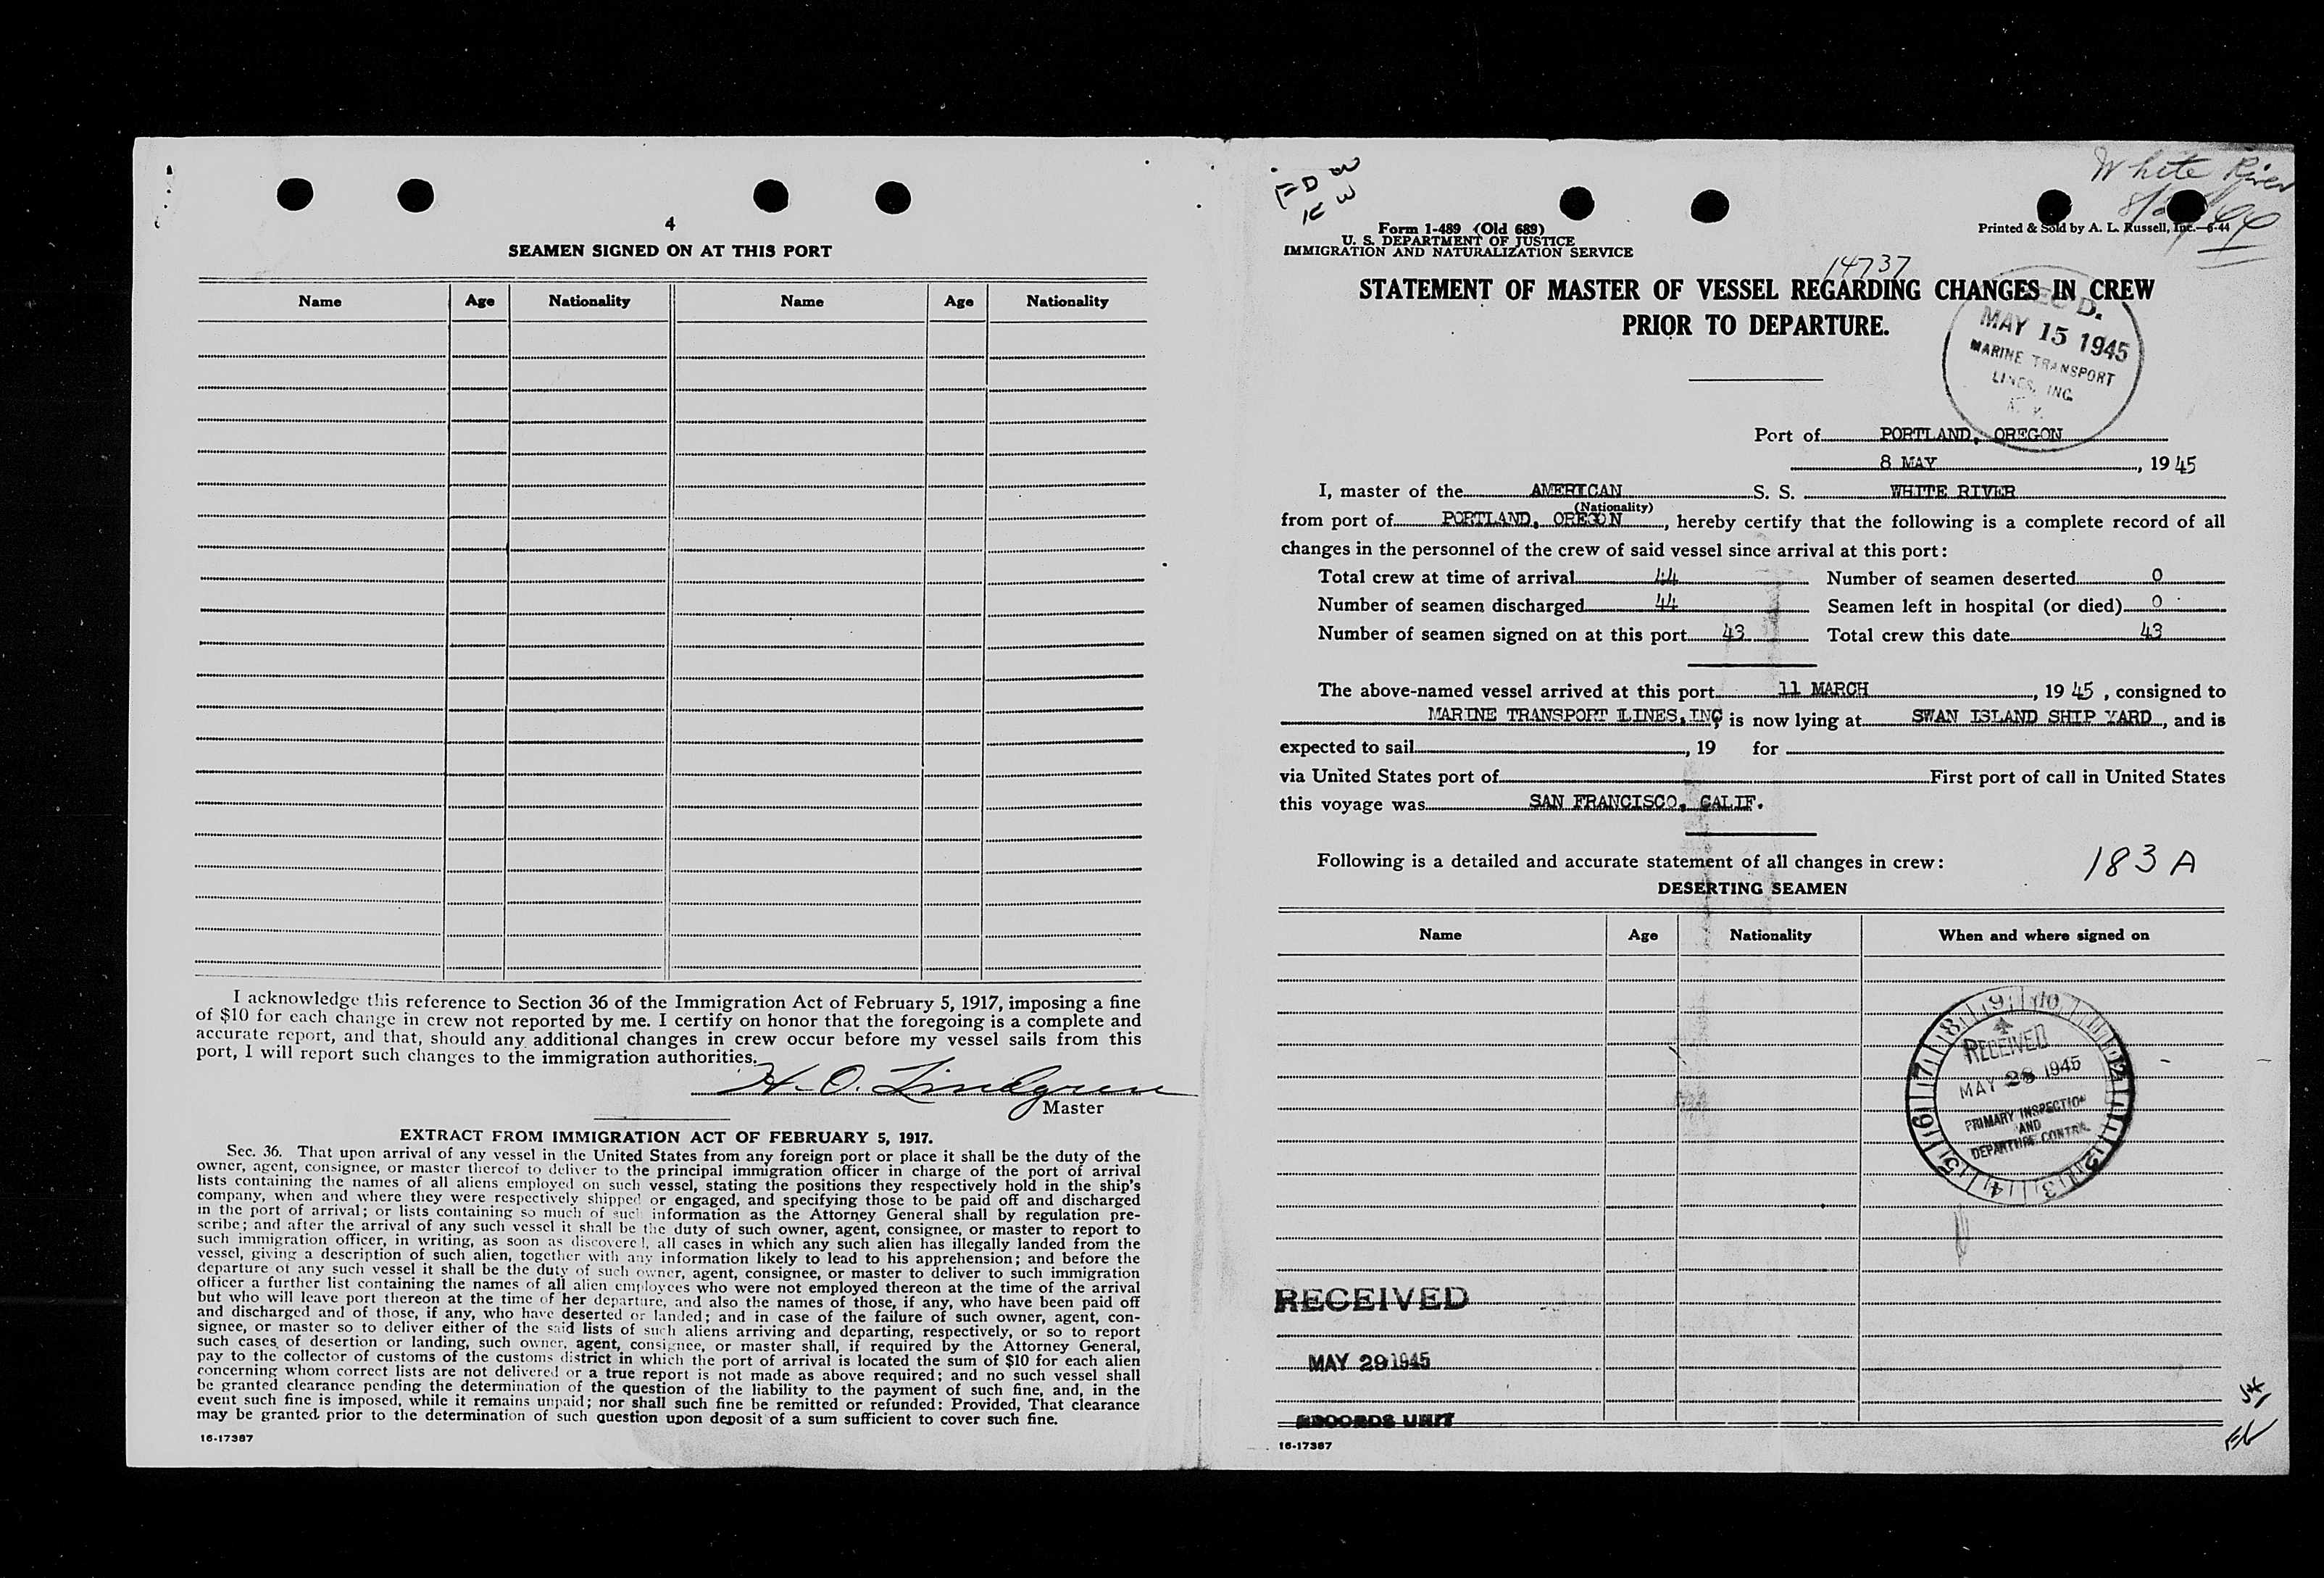 4
SEAMEN SIGNED ON AT THIS PORT
Name Age Nationality Name Age Nationality
I acknowledge this reference to Section 36 of the Immigration Act of February 5, 1917, imposing a fine
of $10 for each change in crew not reported by me. I certify on honor that the foregoing is a complete and
accurate report, and that, should any additional changes in crew occur before my vessel sails from this
port, I will report such changes to the immigration authorities.
H. O. Lindgren
Master
EXTRACT FROM IMMIGRATION ACT OF FEBRUARY 5, 1917.
Sec. 36. That upon arrival of any vessel in the United States from any foreign port or place it shall be the duty of the
owner, agent, consignee, or master thereof to deliver to the principal immigration officer in charge of the port of arrival
lists containing the names of all aliens employed on such vessel, stating the positions they respectively hold in the ship's
company, when and where they were respectively shipped or engaged, and specifying those to be paid off and discharged
in the port of arrival; or lists containing so much of such information as the Attorney General shall by regulation pre-
scribe; and after the arrival of any such vessel it shall be the duty of such owner, agent, consignee, or master to report to
such immigration officer, in writing, as soon as discovered, all cases in which any such alien has illegally landed from the
vessel, giving a description of such alien, together with any information likely to lead to his apprehension; and before the
departure of any such vessel it shall be the duty of such owner, agent, consignee, or master to deliver to such immigration
officer a further list containing the names of all alien employees who were not employed thereon at the time of the arrival
but who will leave port thereon at the time of her departure, and also the names of those, if any, who have been paid off
and discharged and of those, if any, who have deserted or landed; and in case of the failure of such owner, agent, con-
signee, or master so to deliver either of the said lists of such aliens arriving and departing, respectively, or so to report
such cases of desertion or landing, such owner, agent, consignee, or master shall, if required by the Attorney General,
pay to the collector of customs of the customs district in which the port of arrival is located the sum of $10 for each alien
concerning whom correct lists are not delivered or a true report is not made as above required; and no such vessel shall
be granted clearance pending the determination of the question of the liability to the payment of such fine, and, in the
event such fine is imposed, while it remains unpaid; nor shall such fine be remitted or refunded: Provided, That clearance
may be granted prior to the determination of such question upon deposit of a sum sufficient to cover such fine.
16-17387
White River
Form 1-489 (Old 689)
U. S. DEPARTMENT OF JUSTICE
IMMIGRATION AND NATURALIZATION SERVICE
Printed & Sold by A. L. Russell, Inc.—6-44
14737
STATEMENT OF MASTER OF VESSEL REGARDING CHANGES IN CREW
PRIOR TO DEPARTURE.
REC'D.
MAY 15 1945
MARINE TRANSPORT
LINES, INC.
N. Y.
Port of PORTLAND, OREGON
8 MAY, 1945
I, master of the AMERICAN S. S. WHITE RIVER
(Nationality)
from port of PORTLAND, OREGON, hereby certify that the following is a complete record of all
changes in the personnel of the crew of said vessel since arrival at this port:
Total crew at time of arrival 44 Number of seamen deserted 0
Number of seamen discharged 44 Seamen left in hospital (or died) 0
Number of seamen signed on at this port 43 Total crew this date 43
The above-named vessel arrived at this port 11 MARCH, 1945, consigned to
MARINE TRANSPORT LINES, INC, is now lying at SWAN ISLAND SHIP YARD, and is
expected to sail , 19 for
via United States port of First port of call in United States
this voyage was SAN FRANCISCO, CALIF.
Following is a detailed and accurate statement of all changes in crew:
183 A
DESERTING SEAMEN
Name Age Nationality When and where signed on
RECEIVED
MAY 28 1945
PRIMARY INSPECTION
AND
DEPARTURE CONTROL
RECEIVED
MAY 29 1945
RECORDS UNIT
16-17387